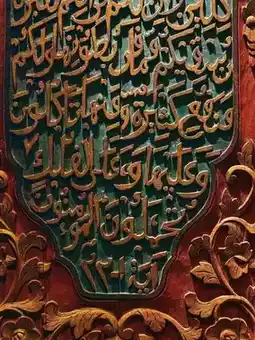 نسقيكم مما في بطونها ولكم
منافع كثيرة ومنها تأكلون
وعليها وعلى الفلك
تحملون المؤمنون
اية